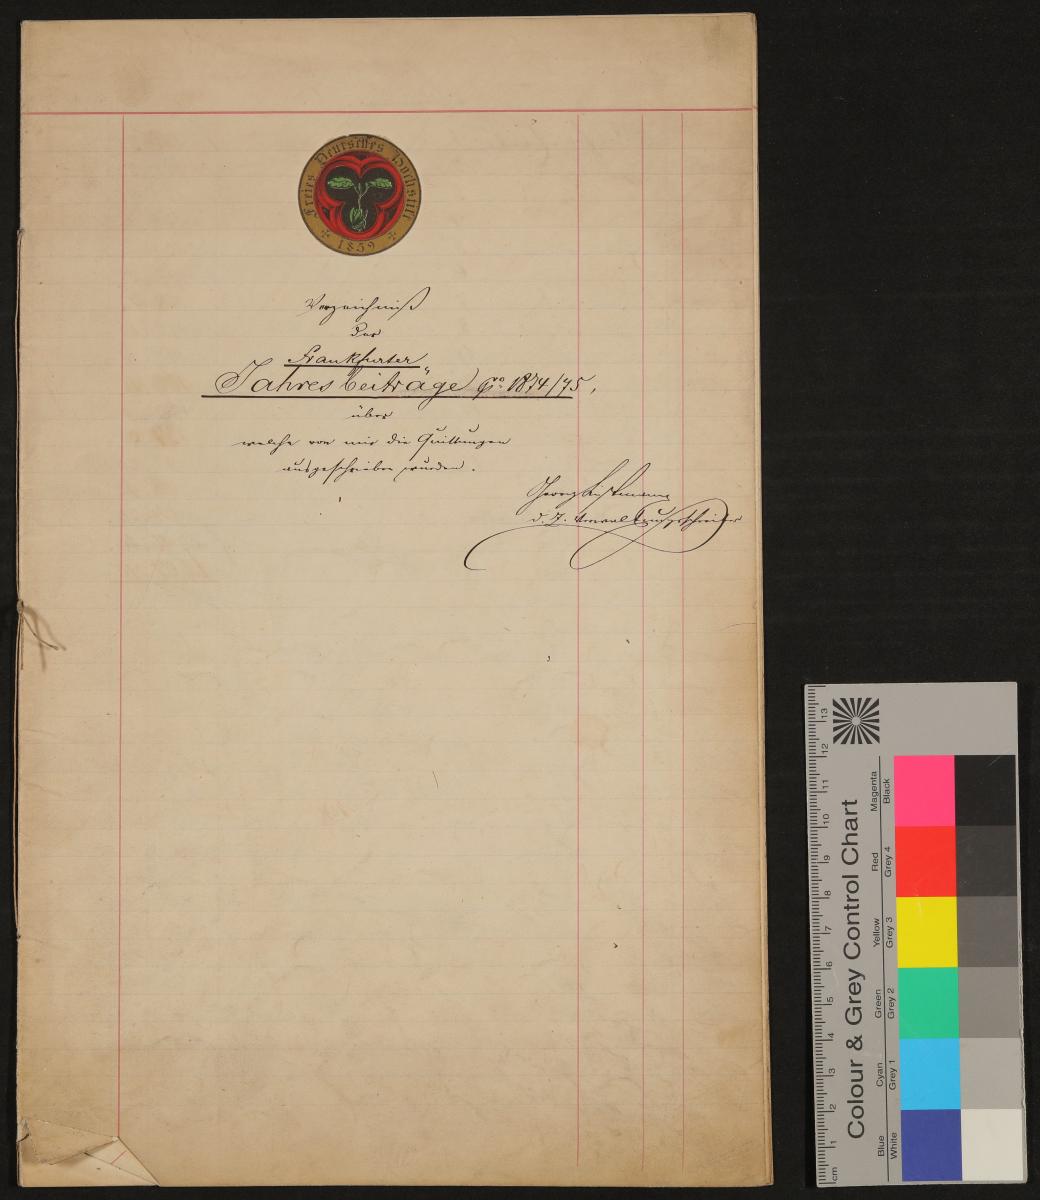 Freies Deutsches Hochstift
1859
Verzeichniß
der
Frankfurter
Jahresbeiträge pro 1874/75,
über
welche von mir die Quittungen
ausgeschrieben wurden.
Georg
d. Z.
Colour & Grey Control Chart
Blue Cyan Green Yellow Red Magenta
White Grey 1 Grey 2 Grey 3 Grey 4 Black
cm 1 2 3 4 5 6 7 8 9 10 11 12 13